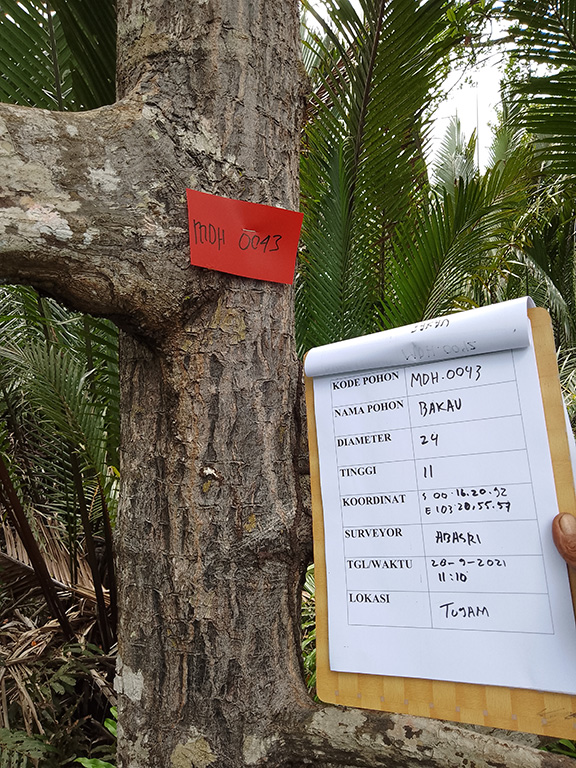 MDH 0043
KODE POHON MDH.0043
NAMA POHON BAKAU
DIAMETER 24
TINGGI 11
KOORDINAT S 00.16.20.92
E 103.20.55.57
SURVEYOR ABASRI
TGL/WAKTU 20-9-2021
11:10
LOKASI